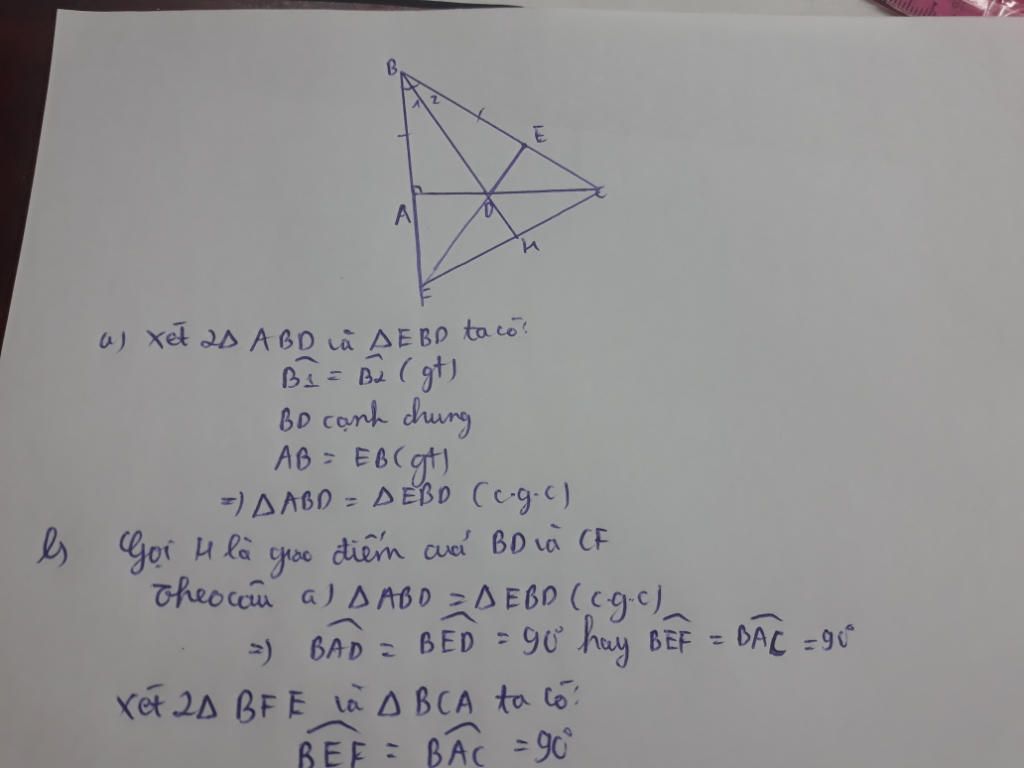 B
1 2
E
A
D
C
H
F
a) Xét 2Δ ABD và ΔEBD ta có:
B̂1 = B̂2 (gt)
BD cạnh chung
AB = EB (gt)
=) ΔABD = ΔEBD (c.g.c)
b) Gọi H là giao điểm cuả BD và CF
Theo câu a) ΔABD = ΔEBD (c.g.c)
=) BAD̂ = BED̂ = 90° hay BEF̂ = BAĈ = 90°
Xét 2Δ BFE và ΔBCA ta có:
BEF̂ = BAĈ = 90°